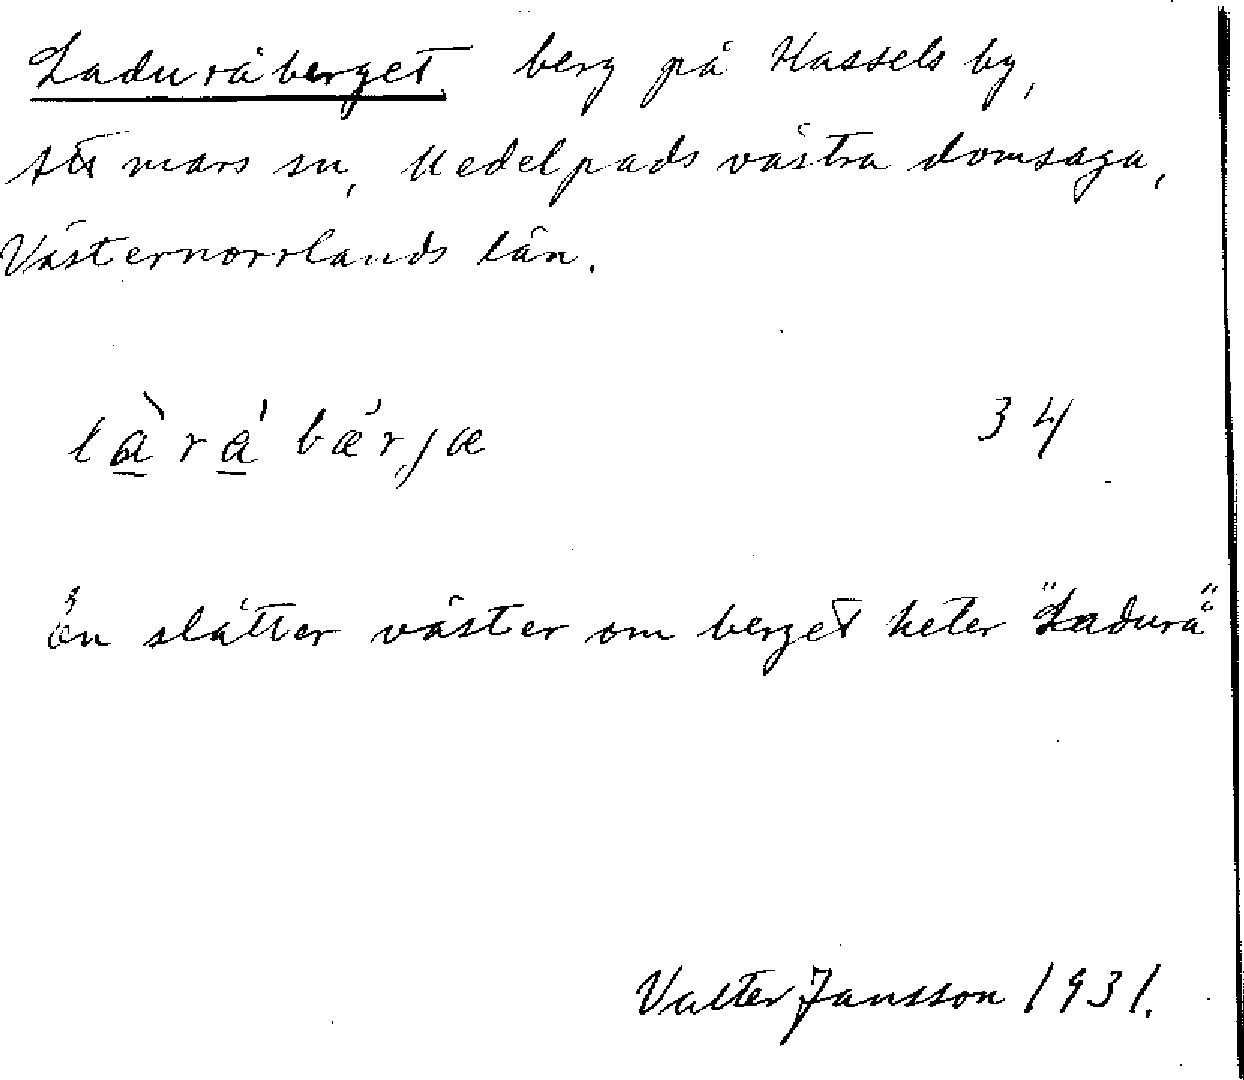 Laduråberget berg på Hassels by,
Attmars sn, Medelpads västra domsaga,
Västernorrlands län.
là̱rá̱bǽrjæ 34
En slåtter väster om berget heter "Ladurå"
Valter Jansson 1931.